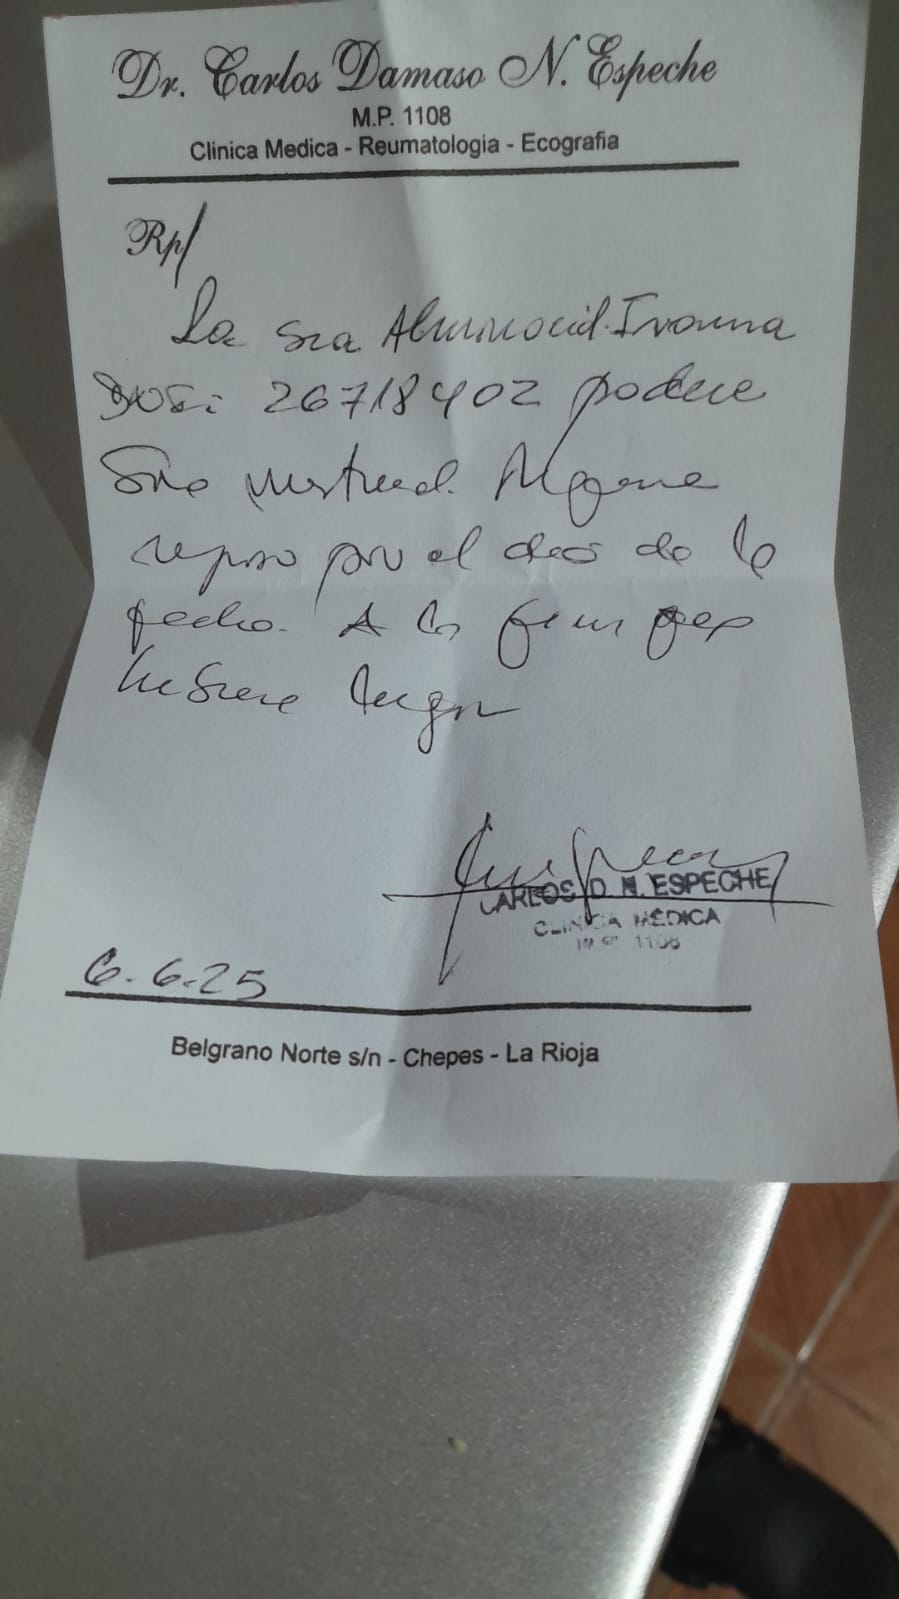 Dr. Carlos Damaso N. Espeche
M.P. 1108
Clinica Medica - Reumatologia - Ecografia
Rp/
La Sra. Ivanna
26718402 padece
reposo por el dia de la
fecha. A los fines que
hubiere lugar
CARLOS D. N. ESPECHE
CLINICA MÉDICA
1108
6.6.25
Belgrano Norte s/n - Chepes - La Rioja